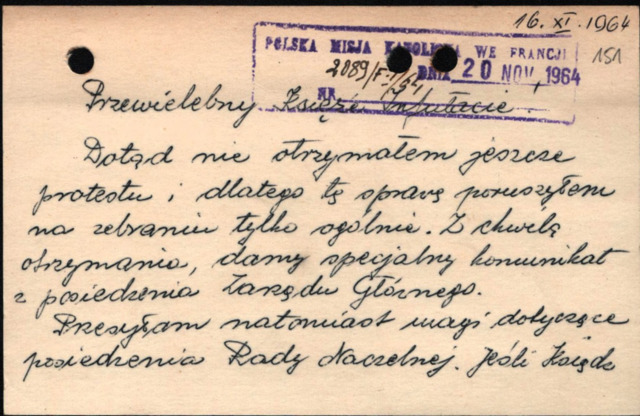 16. XI. 1964
151
POLSKA MISJA KATOLICKA WE FRANCJI
2089/F.II/64
DNIA 20 NOV. 1964
NR
Przewielebny Księże Infułacie,
Dotąd nie otrzymałem jeszcze
protestu i dlatego tę sprawę poruszyłem
na zebraniu tylko ogólnie. Z chwilą
otrzymania, damy specjalny komunikat
z posiedzenia Zarządu Głównego.
Przesyłam natomiast uwagi dotyczące
posiedzenia Rady Naczelnej. Jeśli Ksiądz